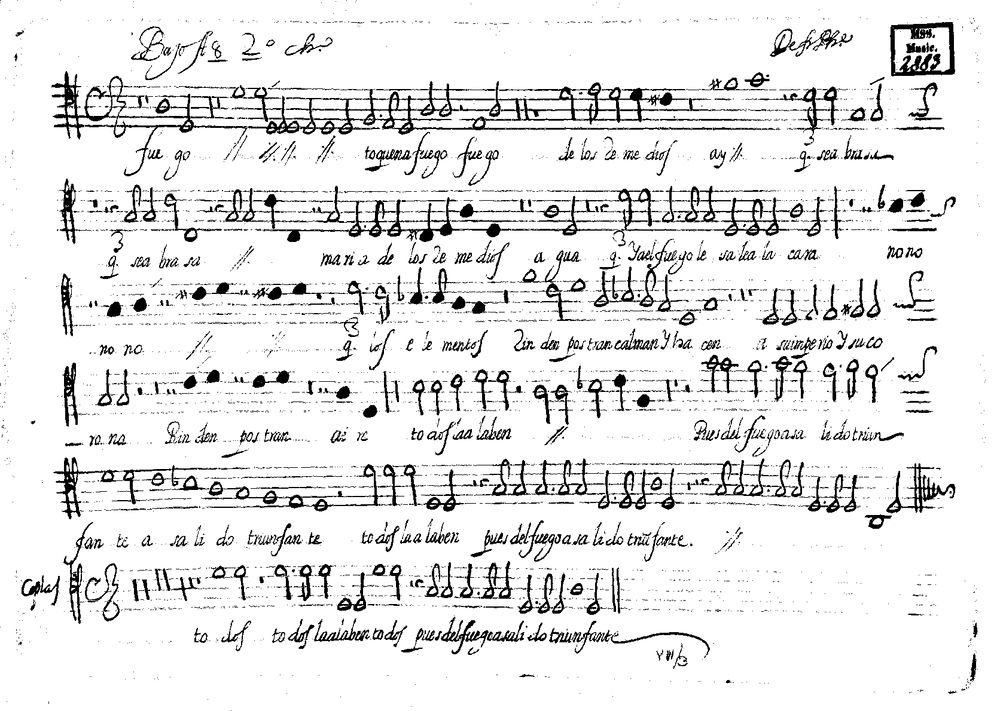 Bajo A 8 2º cho
Mss. Music. 2883
fue go // //. //. // toquena fuego fuego de los Re me dios ay //. q. sea bra sa
q. sea bra sa //. maria de los Re me dios a gua q. Y ael fuego le sa lea la cara no no
no no // // q. los e le mentos Rin den pos tran calman Y ha cen a su imperio Y su co
ro na Rin den pos tran ai re todos laa laben //. Pues del fuego a sa li do triun
fan te a sa li do triunfan te todos laa laben pues del fuego a sa li do triūfante. //.
Coplas
to dos to dos laa laben to dos pues del fuego a sa li do triunfante